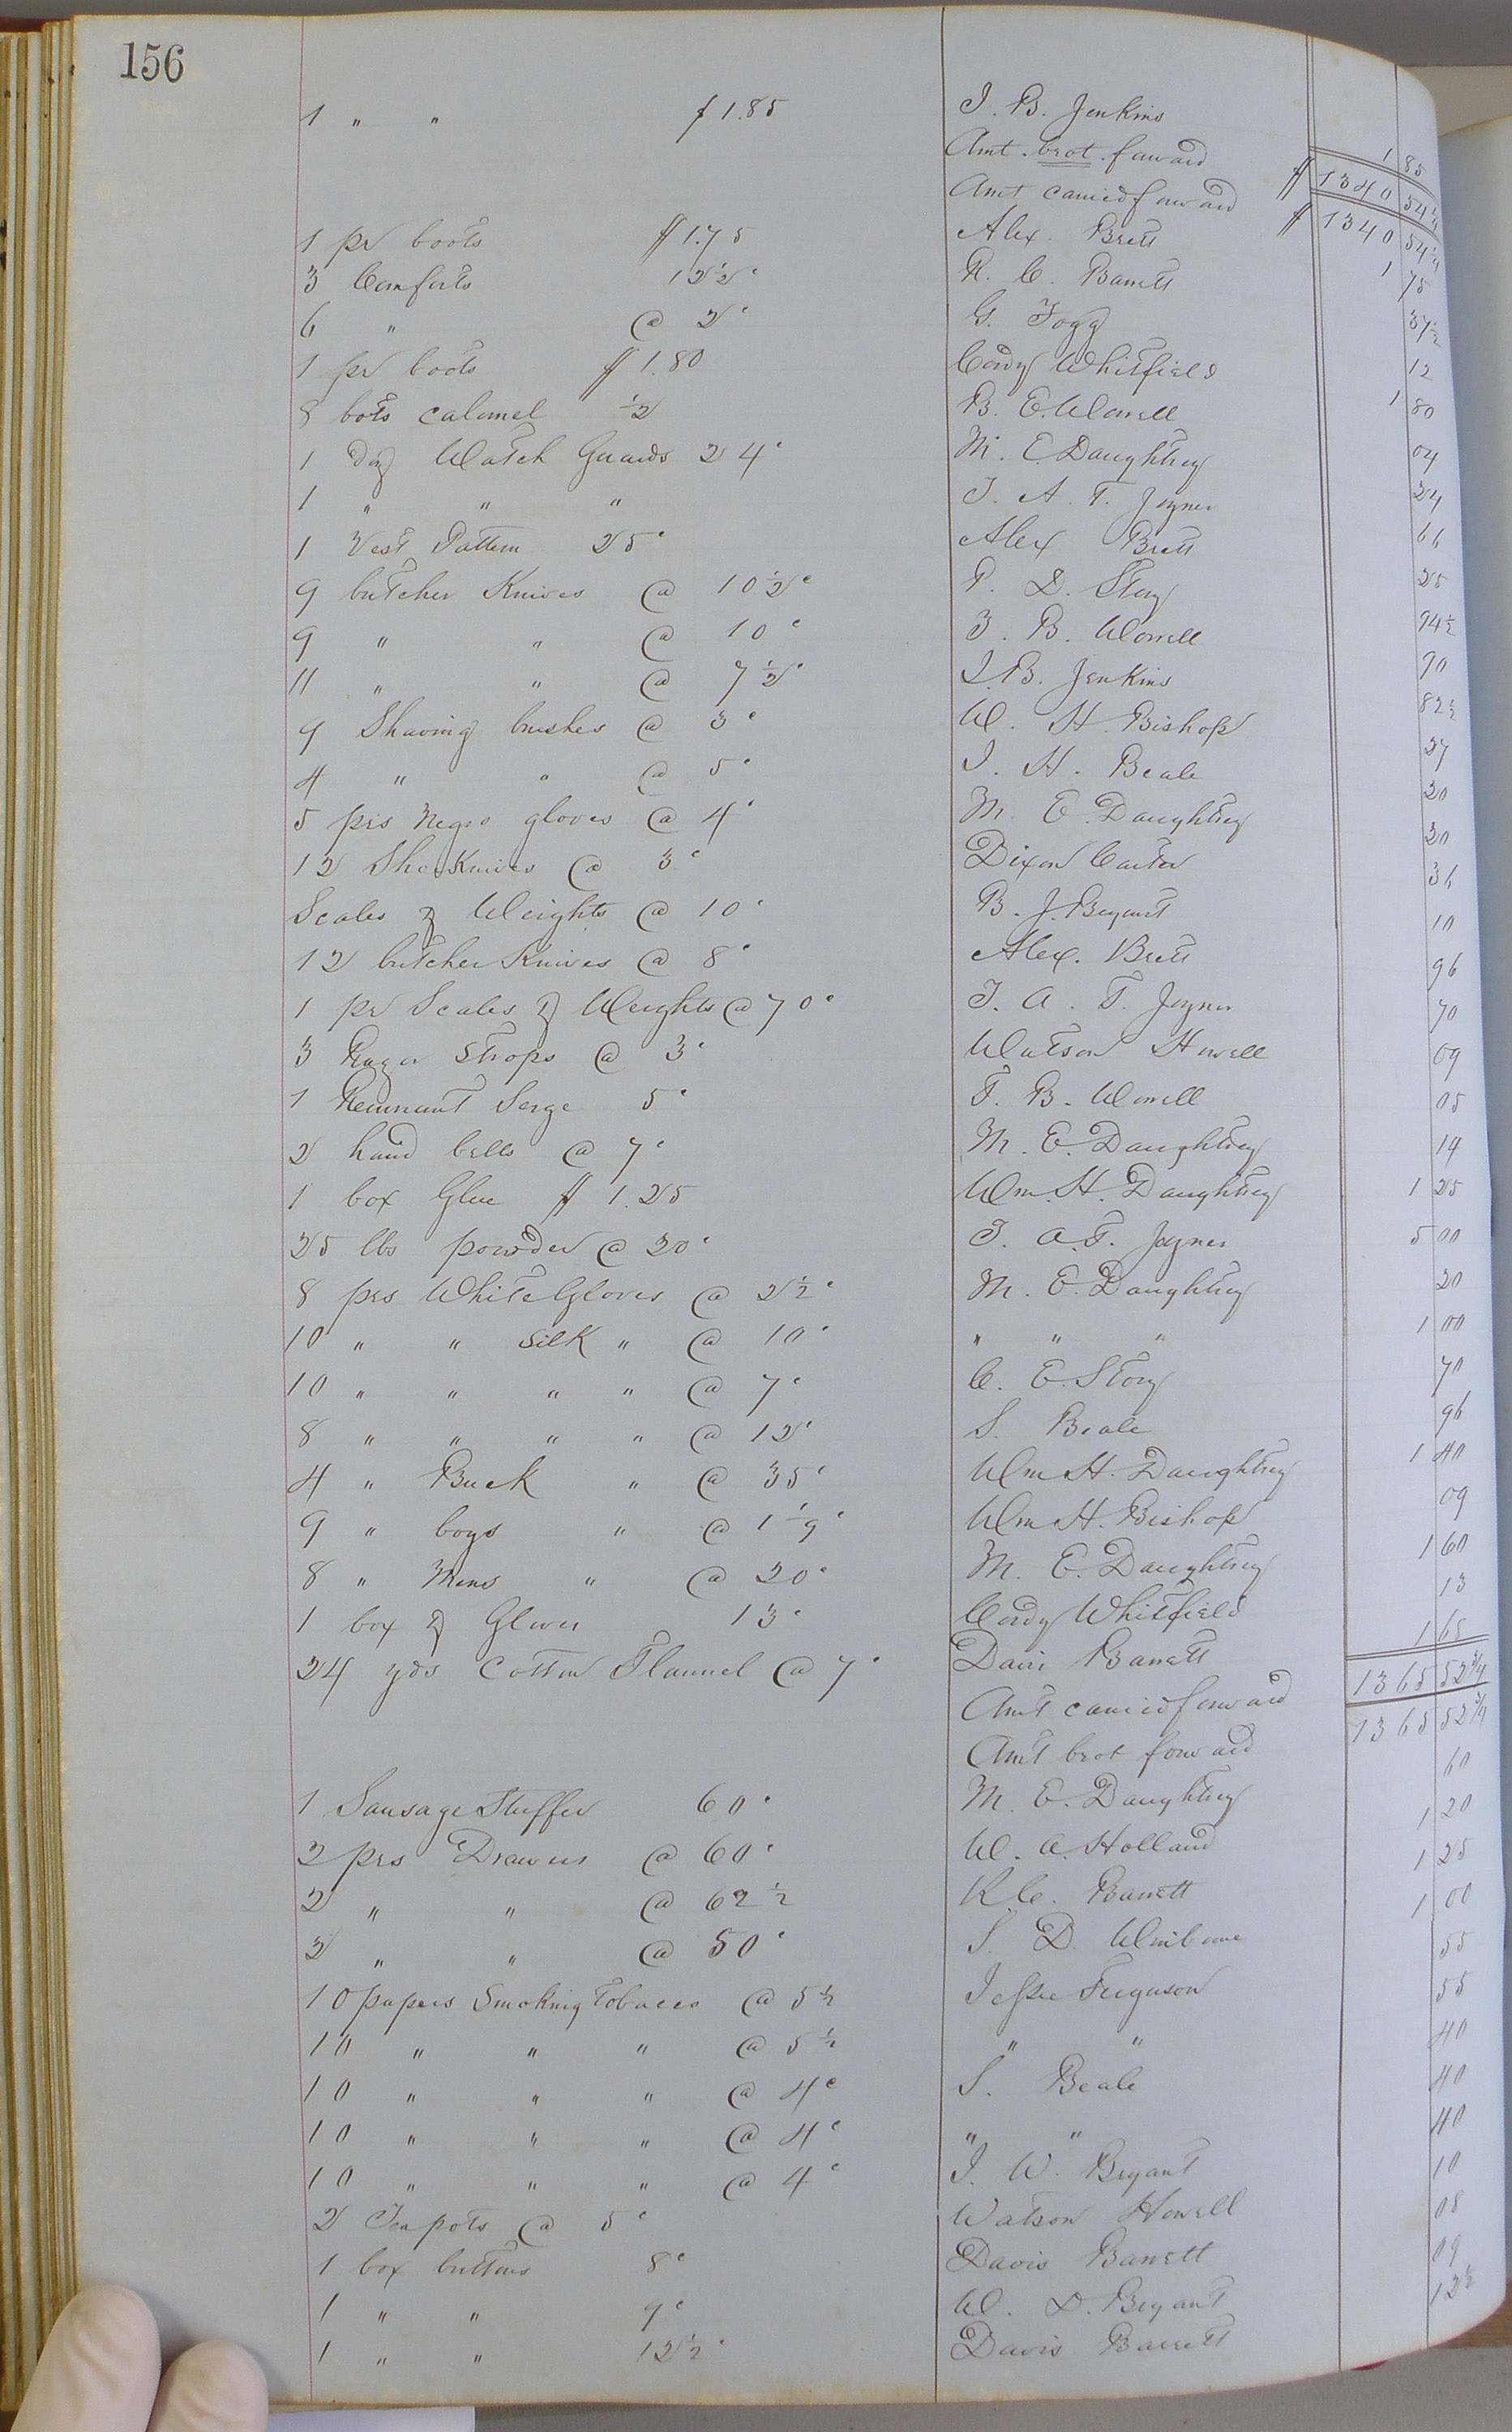 156
1 " " $1.85 J. B. Jenkins 1 85
Amt. brot. forward $1340 54 1/4
Amt carried forward $1340 54 1/4
1 pr boots $1.75 Alex. Brett 1 75
3 Comforts 12½c R. C. Barrett 37½
6 " @ 2c G. Fogg 12
1 pr boots $1.80 Cordy Whitfield 1 80
8 bots calomel ½ B. E. Worrell 04
1 doz Watch Guards 24c M. E. Daughtrey 24
1 " " " J. A. T. Joyner 66
1 Vest Pattern 25c Alex Brett 25
9 butcher Knives @ 10½c P. D. Story 94½
9 " " @ 10c B. Worrell 90
11 " " @ 7½c J. B. Jenkins 82½
9 Shaving brushes @ 3c W. H. Bishop 27
4 " " @ 5c J. H. Beale 20
5 prs Negro gloves @ 4c M. E. Daughtrey 20
12 Shoe Knives @ 3c Dixon Carter 36
Scales & Weights @ 10c B. J. Bryant 10
12 butcher Knives @ 8c Alex. Brett 96
1 pr Scales & Weights @ 70c J. A. T. Joyner 70
3 Razor Strops @ 3c Watson Howell 09
1 Remnant Serge 5c T. B. Worrell 05
2 hand bells @ 7c M. E. Daughtrey 14
1 box Glue $1.25 Wm. H. Daughtrey 1 25
25 lbs powder @ 20c J. A. T. Joyner 5 00
8 prs White Gloves @ 2½c M. E. Daughtrey 20
10 " " Silk " @ 10c " " " 1 00
10 " " " " @ 7c C. E. Story 70
8 " " " " @ 12c S. Beale 96
4 " Buck " @ 35c Wm H. Daughtrey 1 40
9 " boys " @ 1c Wm H. Bishop 09
8 " Mens " @ 20c M. E. Daughtrey 1 60
1 box & Gloves 13c Cordy Whitfield 13
24 yds Cotton Flannel @ 7c Davis Barrett 1 68
Amt carried forward 1365 52 3/4
Amt brot forward 1365 52 3/4
1 Sausage Stuffer 60c M. E. Daughtrey 60
2 prs Drawers @ 60c W. A. Holland 1 20
2 " " @ 62½ R. C. Barrett 1 25
2 " " @ 50c S. D. Winborne 1 00
10 papers Smoking Tobacco @ 5½ Jesse Ferguson 55
10 " " " @ 5½ " " 55
10 " " " @ 4c S. Beale 40
10 " " " @ 4c " " 40
10 " " " @ 4c J. W. Bryant 40
2 Tea pots @ 5c Watson Howell 10
1 box buttons 8c Davis Barrett 08
1 " " 9c W. D. Bryant 09
1 " " 12½c Davis Barrett 12½